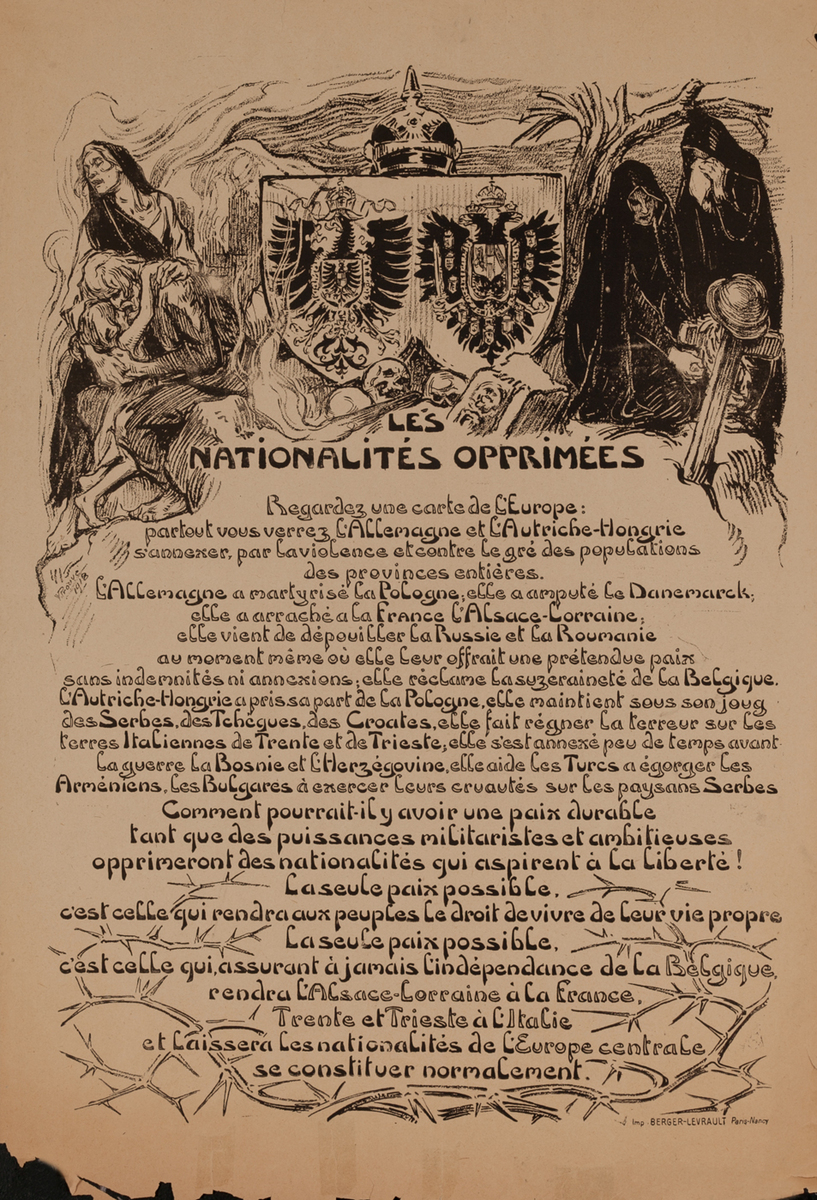 LES
NATIONALITÉS OPPRIMÉES
Regardez une carte de l'Europe :
partout vous verrez l'Allemagne et l'Autriche-Hongrie
s'annexer, par la violence et contre le gré des populations
des provinces entières.
L'Allemagne a martyrisé la Pologne; elle a amputé le Danemarck;
elle a arraché a la France l'Alsace-Lorraine;
elle vient de dépouiller la Russie et la Roumanie
au moment même où elle leur offrait une prétendue paix
sans indemnités ni annexions; elle réclame la suzeraineté de la Belgique.
L'Autriche-Hongrie a pris sa part de la Pologne, elle maintient sous son joug
des Serbes, des Tchèques, des Croates, elle fait régner la terreur sur les
terres Italiennes de Trente et de Trieste; elle s'est annexé peu de temps avant
la guerre la Bosnie et l'Herzégovine, elle aide les Turcs a égorger les
Arméniens, les Bulgares à exercer leurs cruautés sur les paysans Serbes
Comment pourrait-il y avoir une paix durable
tant que des puissances militaristes et ambitieuses
opprimeront des nationalités qui aspirent à la liberté !
La seule paix possible,
c'est celle qui rendra aux peuples le droit de vivre de leur vie propre
La seule paix possible,
c'est celle qui, assurant à jamais l'indépendance de la Belgique,
rendra l'Alsace-Lorraine à la France,
Trente et Trieste à l'Italie
et laissera les nationalités de l'Europe centrale
se constituer normalement.
Imp. BERGER-LEVRAULT Paris-Nancy